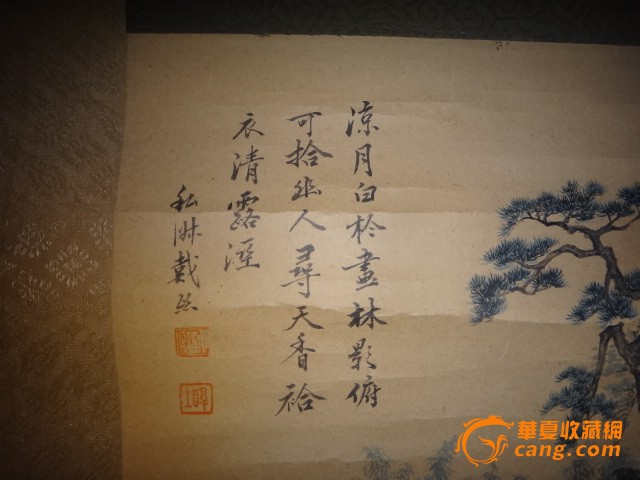 涼月白於畫林影俯
可拾幽人尋天香袷
衣清露溼
私淋戴熙
華夏收藏網
cang.com